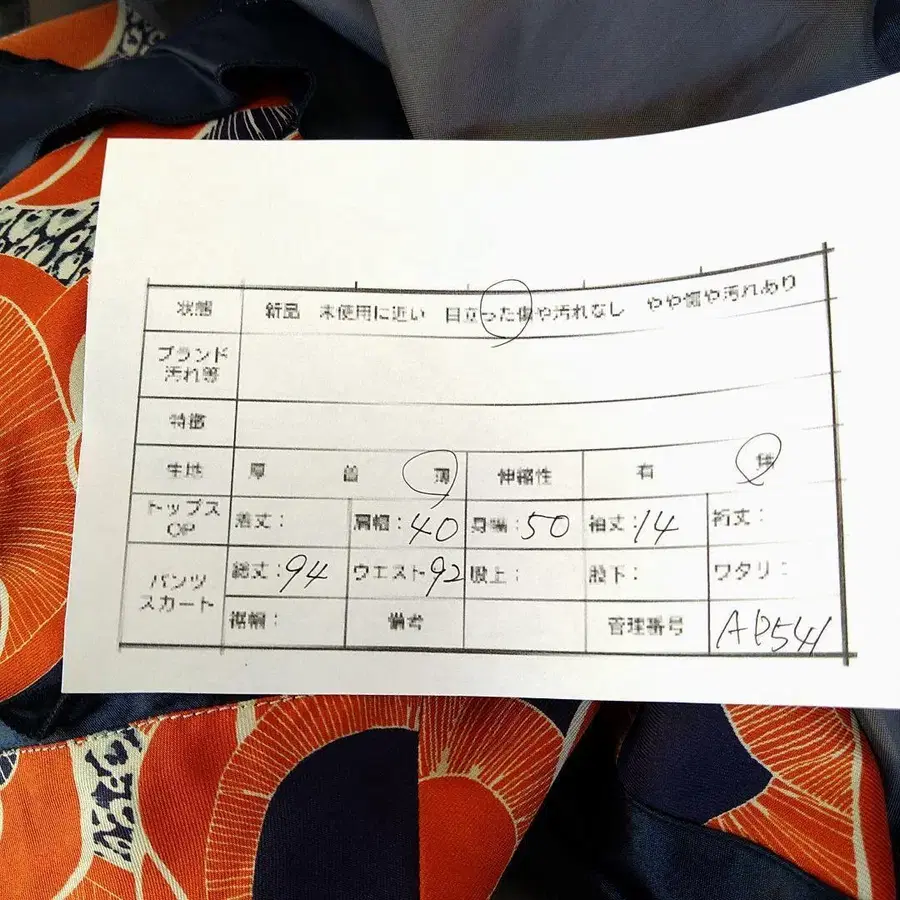 状態 新品 未使用に近い 目立った傷や汚れなし やや傷や汚れあり
ブランド
汚れ等
特徴
生地 厚 普 薄 伸縮性 有 無
トップス
OP
着丈: 肩幅:40 身幅:50 袖丈:14 裄丈:
パンツ
スカート
総丈:94 ウエスト92 股上: 股下: ワタリ:
裾幅: 備考 管理番号 AP541